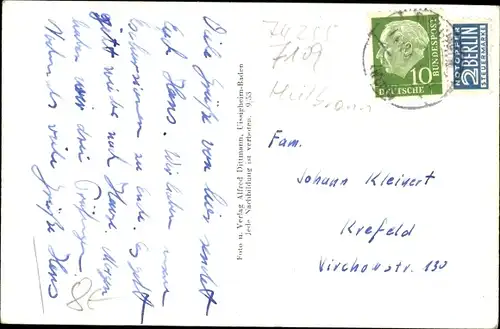 Viele Grüße von hier sendet
Euch Hans. Wir haben nun
Exkursionen zu Ende. Es geht
jetzt wieder nach Hause. Morgen
haben wir drei Prüfungen.
Nochmals viele Grüße Hans
Foto u. Verlag Alfred Dittmann, Uissigheim-Baden
Jede Nachbildung ist verboten. 9.53
74255
7109
Heilbronn
10
DEUTSCHE
BUNDESPOST
NOTOPFER
2 BERLIN
STEUERMARKE
Fam.
Johann Kleinert
Krefeld
Virchowstr. 130